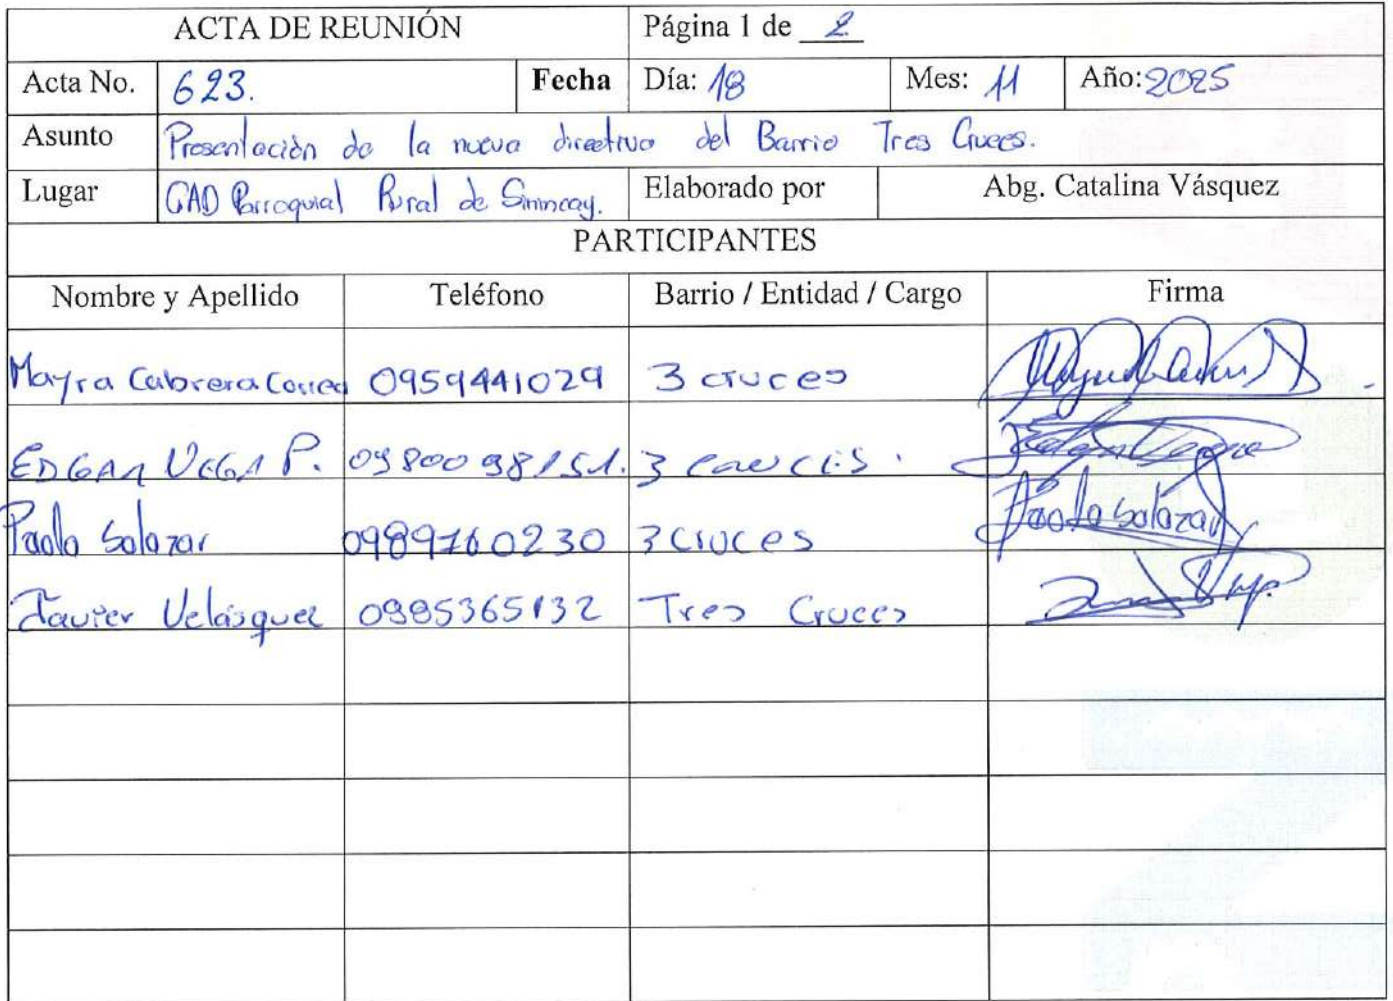 ACTA DE REUNIÓN Página 1 de 2
Acta No. 623. Fecha Día: 18 Mes: 11 Año: 2025
Asunto Presentación de la nueva directiva del Barrio Tres Cruces.
Lugar GAD Parroquial Rural de Sinincay. Elaborado por Abg. Catalina Vásquez
PARTICIPANTES
Nombre y Apellido Teléfono Barrio / Entidad / Cargo Firma
Mayra Cabrera Correa 0959441029 3 cruces
EDGAR VEGA P. 0980098151. 3 cruces.
Paola Salazar 0989760230 3 cruces Paola Salazar
Javier Velásquez 0985365132 Tres Cruces